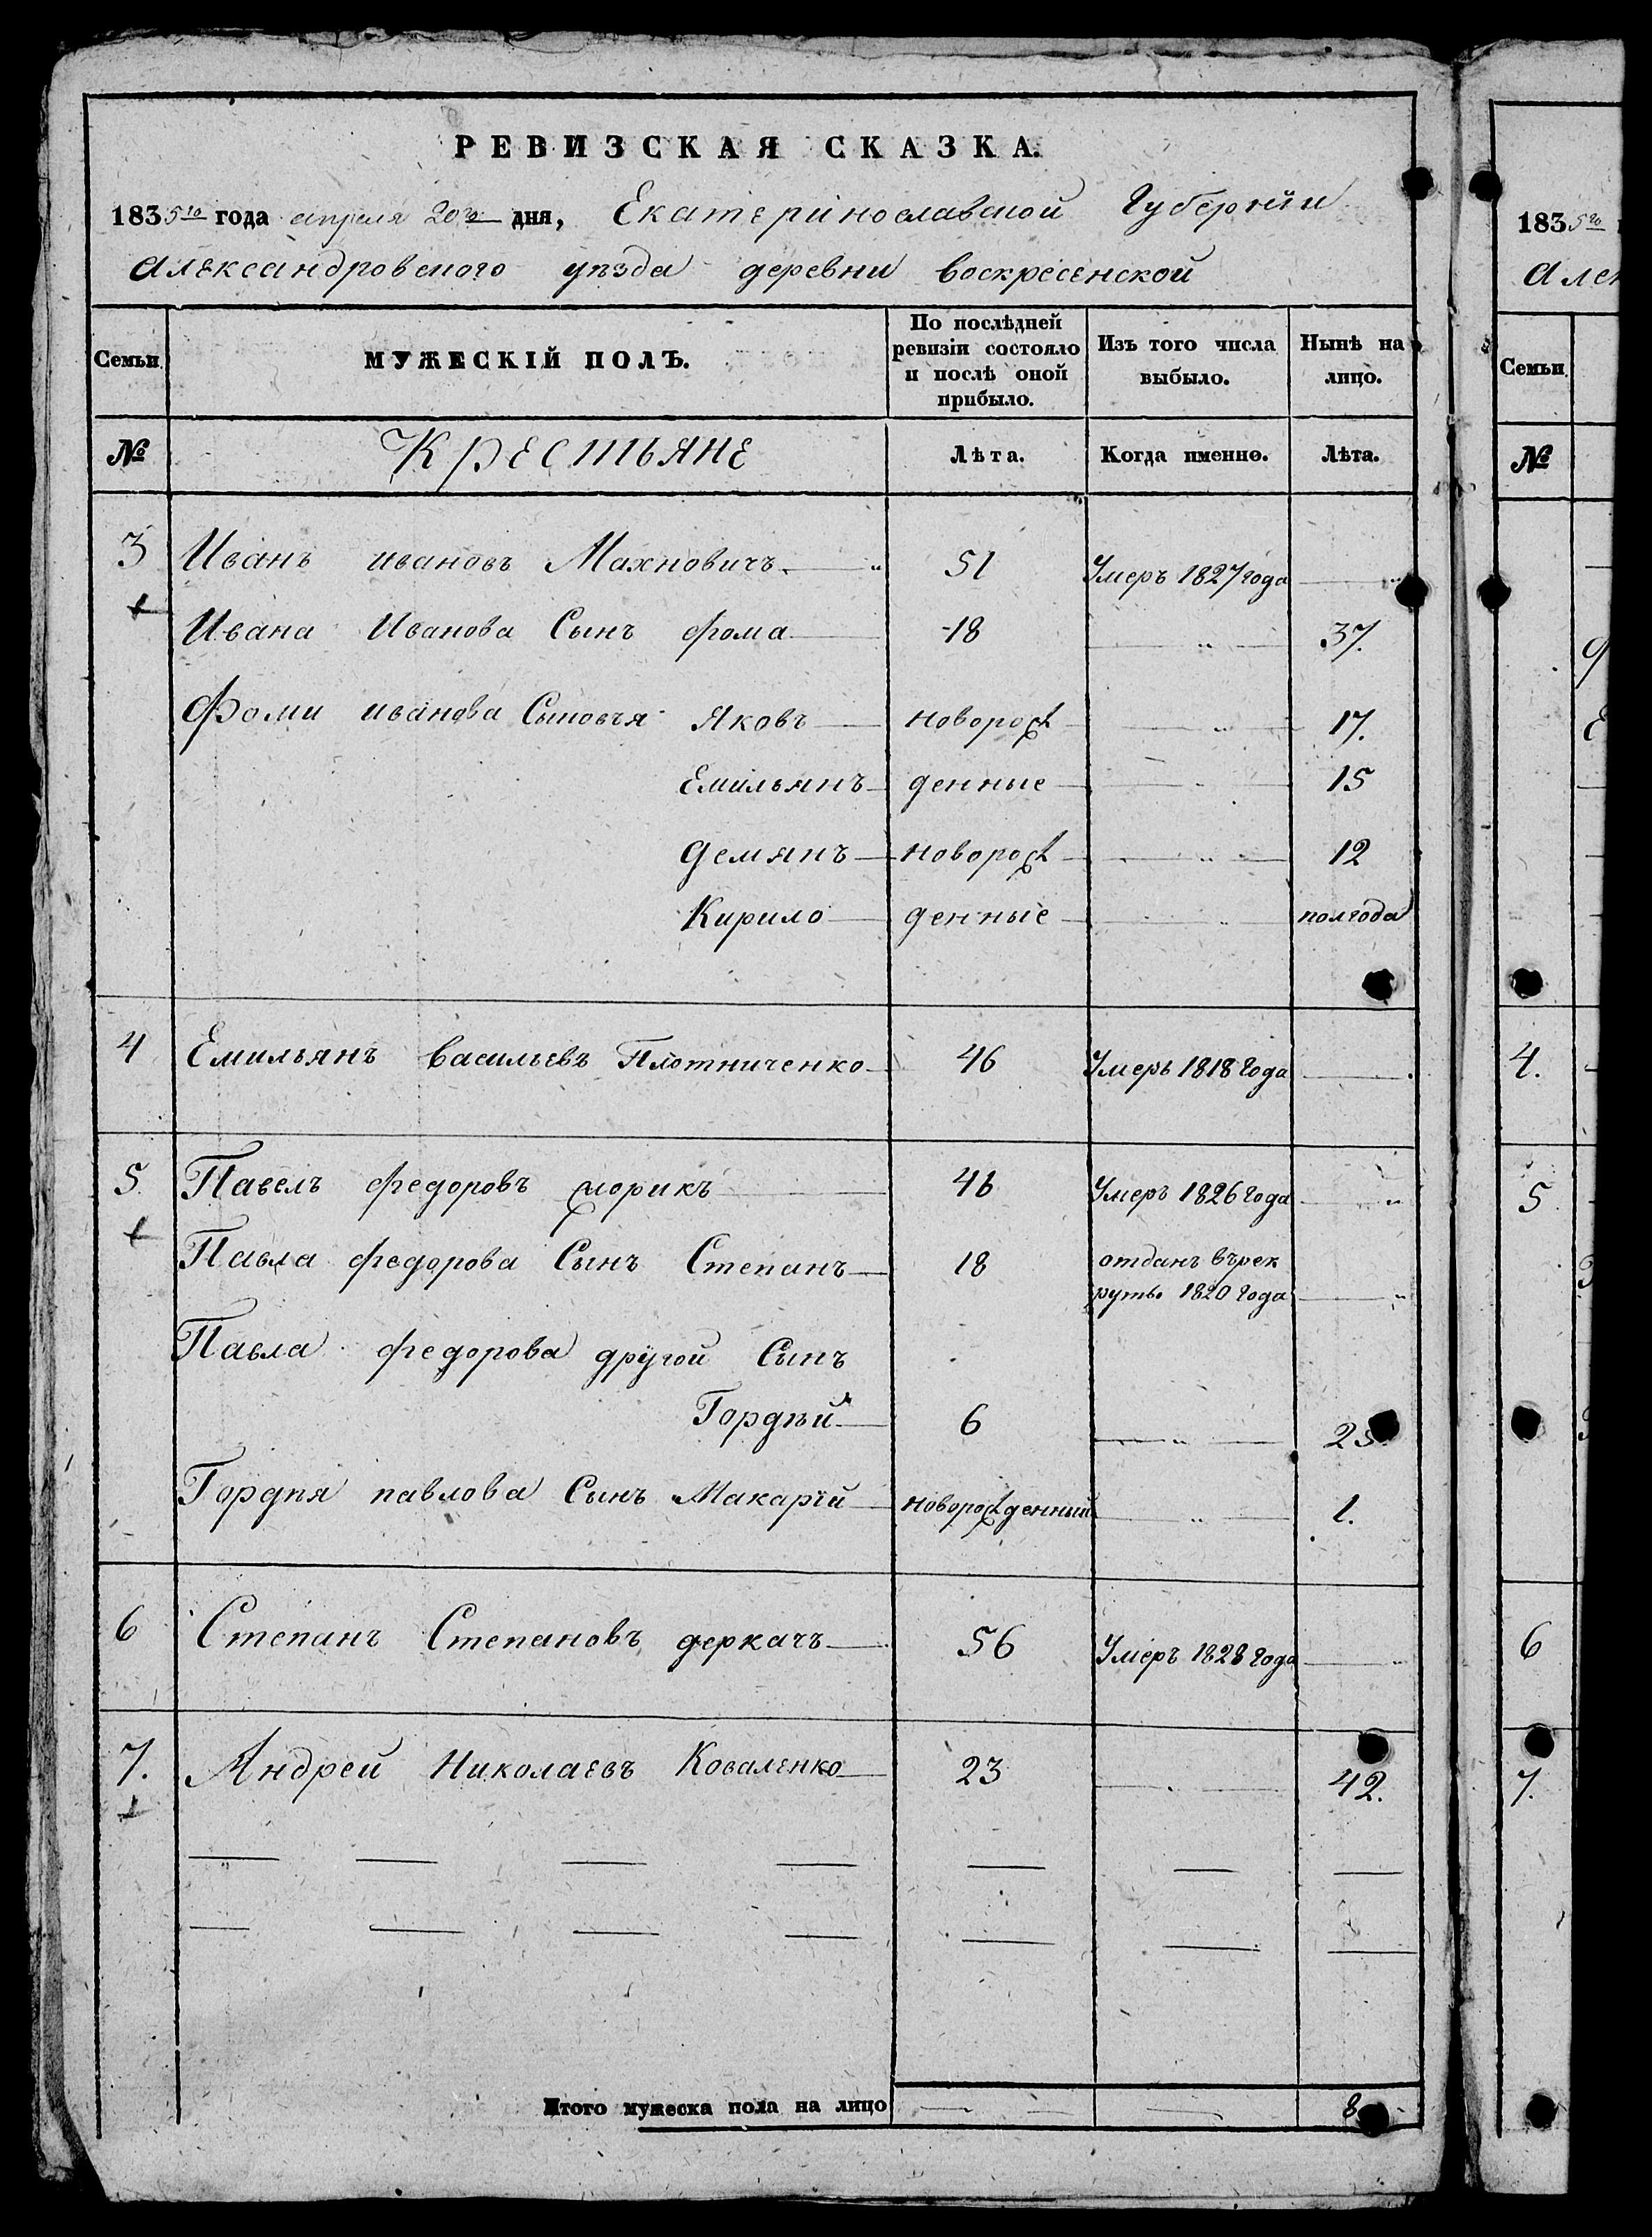 РЕВИЗСКАЯ СКАЗКА.
1835го года апреля 20го дня, Екатеринославской Губернии
Александровского уѣзда деревни Воскресенской
Семьи МУЖЕСКІЙ ПОЛЪ. По послѣдней ревизіи состояло и послѣ оной прибыло. Изъ того числа выбыло. Нынѣ на лицо.
№ Крестьяне Лѣта. Когда именно. Лѣта.
3 Иванъ ивановъ Махновичъ 51 Умеръ 1827 года
Ивана Иванова Сынъ фома 18 37.
Фоми иванова Сыновъя Яковъ новорож 17.
Емильянъ денные 15
Демянъ новорож 12
Кирило денные полгода
4 Емильянъ васильевъ Плотниченко 46 Умеръ 1818 года
5 Павелъ федоровъ 46 Умеръ 1826 года
Павла федорова Сынъ Степанъ 18 отданъ върек
руты 1820 года
Павла федорова другой Сынъ
Гордѣй 6 25.
Гордѣя павлова Сынъ Макарій новорожденный 1.
6 Степанъ Степановъ деркачъ 56 Умеръ 1828 года
7. Андрей Николаевъ Коваленко 23 42.
Итого мужеска пола на лицо 8
1835го
Але
Семьи
№
4.
5
6
7.